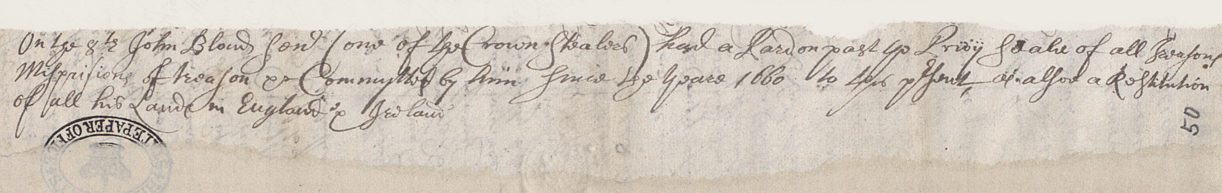 On the 8th John Bloud senr (one of the Crown Stealers) had a Pardon past ye Privy Seale of all Treasons
Misprisions of treason &c Committed by him since the yeare 1660 to this psent, & alsoe a Restitution
of all his Lands in England & Ireland
50
PAPER OFF